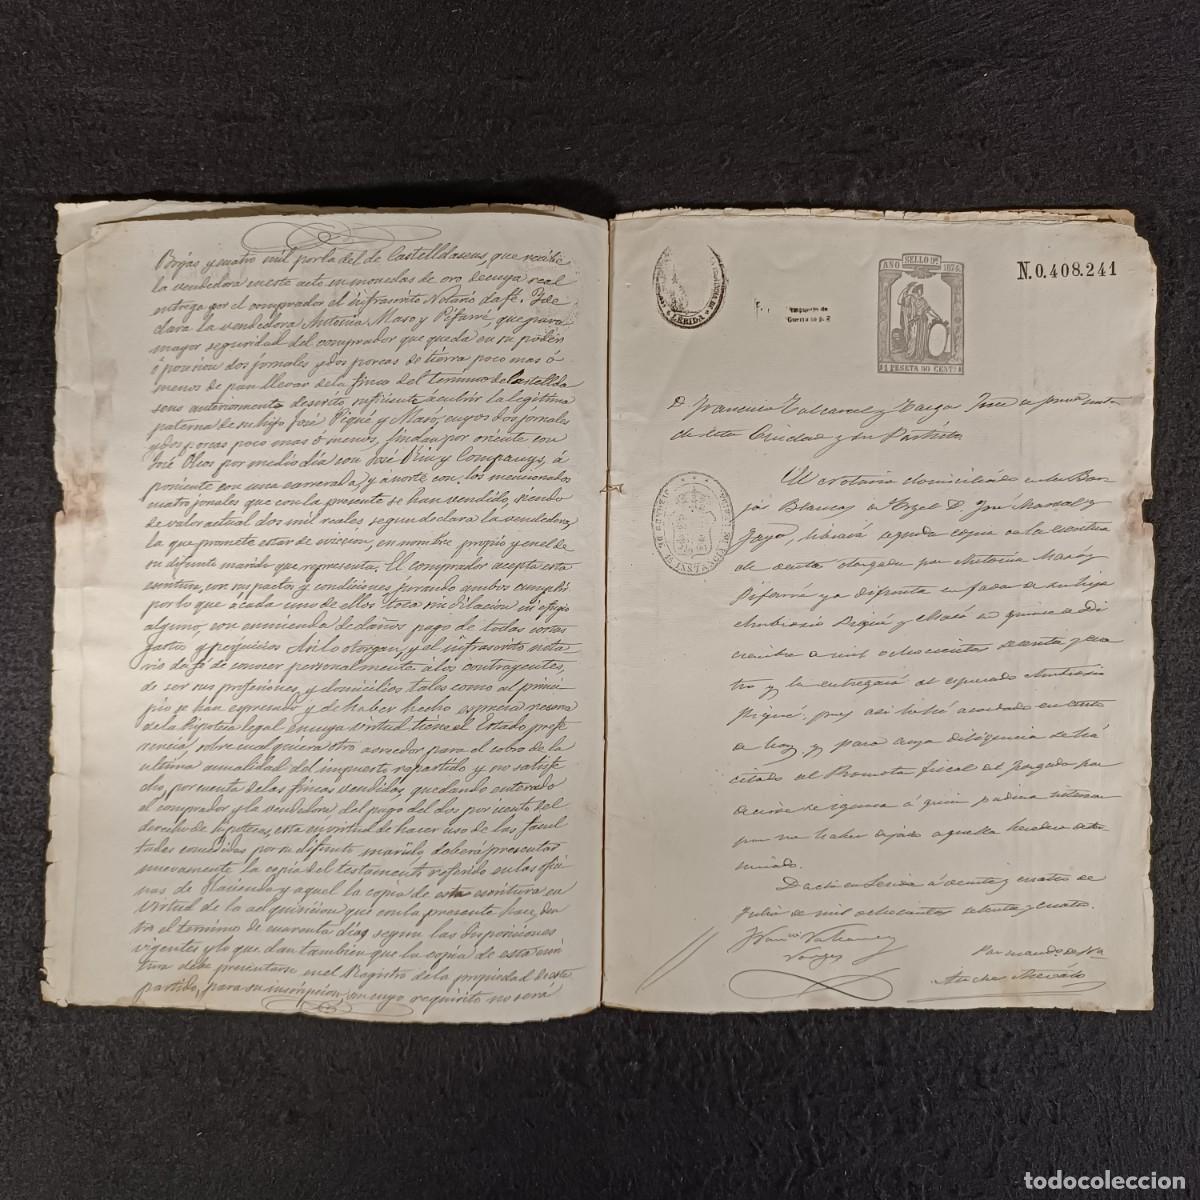 Borjas y cuatro mil por la del de Castelldasens, que recibe
la vendedora en este acto en monedas de oro de cuya real
entrega por el comprador, el infrascrito Notario da fé. I de
clara la vendedora Antonia Masó y Pifarré, que para
mayor seguridad del comprador que queda en su poder
ó posesion dos jornales y dos porcas de tierra poco mas ó
menos de pan llevar de la finca del termino de Castellda
sens anteriormente descrito, suficiente a cubrir la legitima
paterna de su hijo José Piqué y Masó, cuyos dos jornales
y dos porcas poco mas ó menos, lindan por oriente con
José Oleos por medio dia con José Viu y Companys, á
poniente con una carrerada, y a norte con los mencionados
cuatro jornales que con la presente se han vendido, siendo
de valor actual dos mil reales segun declara la vendedora,
la que promete estar de eviccion, en nombre propio y en el de
su difunto marido que representa. El comprador acepta esta
con sus pactos y condiciones, jurando ambos cumplir
por lo que a cada uno de ellos toca sin dilacion ni efugio
alguno, con enmienda de daños pago de todas costas
gastos y perjuicios. Asi lo otorgan, y el infrascrito nota
rio da fé de conocer personalmente a los contrayentes,
de ser sus profesiones y domicilios tales como al princi-
pio se han espresado y de haber hecho espresa reserva
de la hipoteca legal en cuya virtud tiene el Estado prefe
rencia, sobre cualquiera otro acreedor para el cobro de la
ultima anualidad del impuesto repartido y no satisfe
cho, por cuenta de las fincas vendidas, quedando enterado
el comprador y la vendedora del pago del dos por ciento del
derecho de hipoteca, esta en virtud de hacer uso de las facul
tades concedidas por su difunto marido deberá presentar
nuevamente la copia del testamento referido en las ofici
nas de Hacienda y aquel la copia de esta escritura en
virtud de la adquisicion que con la presente hace, den
tro el termino de cuarenta dias segun las disposiciones
vigentes y lo que dan tambien que la copia de esta escri
tura debe presentarse en el Registro de la propiedad de este
partido, para su inscripcion, sin cuyo requisito no será
LÉRIDA
Impuesto de
Guerra
AÑO SELLO 1874
1 PESETA 50 CENTS
N. 0.408.241
D. Francisco Valcarcel y Vargas Juez de primera insta
de esta Ciudad y su Partido
JUZGADO DE 1ª INSTANCIA
El notario domiciliado en las Bor-
jas Blancas de Urgel D. José Marsal y
Gayá, librará aguda copia de la escritura
de venta otorgada por Antonia Masó y
Pifarré ya difunta en favor de su hijo
Ambrosio Piqué y Masó en quince de Di
ciembre de mil ochocientos sesenta y cua
tro y la entregará al espresado Ambrosio
Piqué: pues asi lo hé acordado en auto
de hoy, y para cuya diligencia se há
citado al Promotor fiscal del Juzgado por
decirse se ignora á quien podria interesar
por no haber dejado aquella heredero deter
minado.
Dado en Lerida á veinte y cuatro de
Julio de mil ochocientos setenta y cuatro.
Franco Valcarcel y
Vargas
Por mandado de Sa
todocoleccion